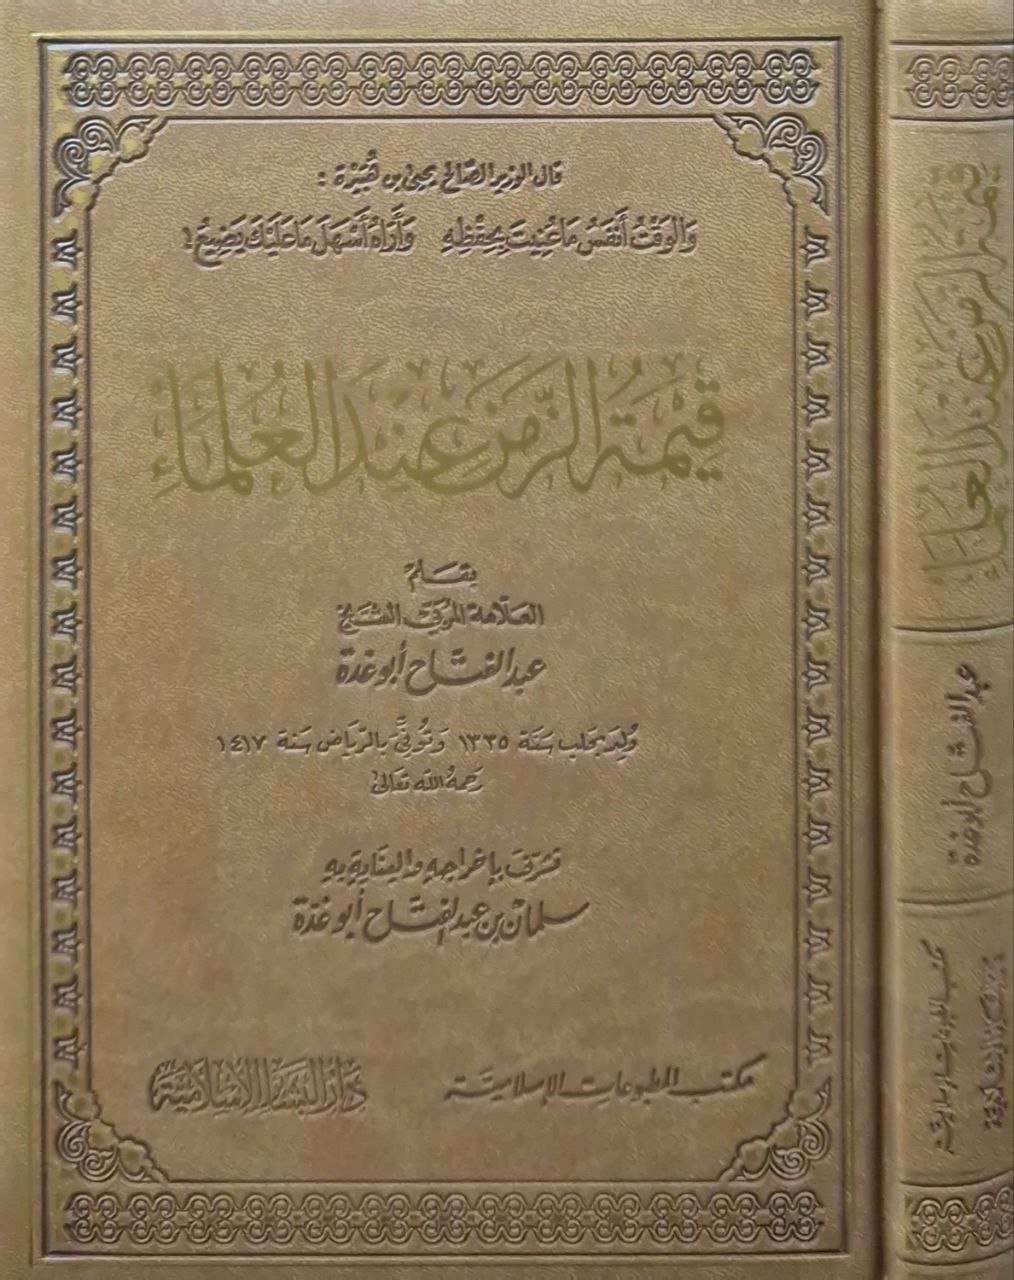 قال الوزير الصالح يحيى بن هُبَيْرَة :
وَالوَقْتُ أَنْفَسُ مَا عُنِيتَ بِحِفْظِهِ وَأَرَاهُ أَسْهَلَ مَا عَلَيْكَ يَضِيعُ !
قِيمَةُ الزَّمَنِ عِنْدَ العُلَمَاءِ
بقلم
العلّامة المربّي الشيخ
عبد الفتّاح أبو غدة
وُلِدَ بحلب سَنَة ١٣٣٥ وَتُوُفِّيَ بالرّياض سَنة ١٤١٧
رَحمهُ الله تعالى
تشرّفَ بإخراجهِ والعِنَايَةِ بهِ
سلمان بن عبد الفتّاح أبو غدّة
مكتب المطبوعات الإسلاميّة
دَارُ البَشَائِرِ الإِسْلَامِيَّةِ
قيمة الزمن عند العلماء
عبد الفتّاح أبو غدة
مكتب المطبوعات الإسلاميّة